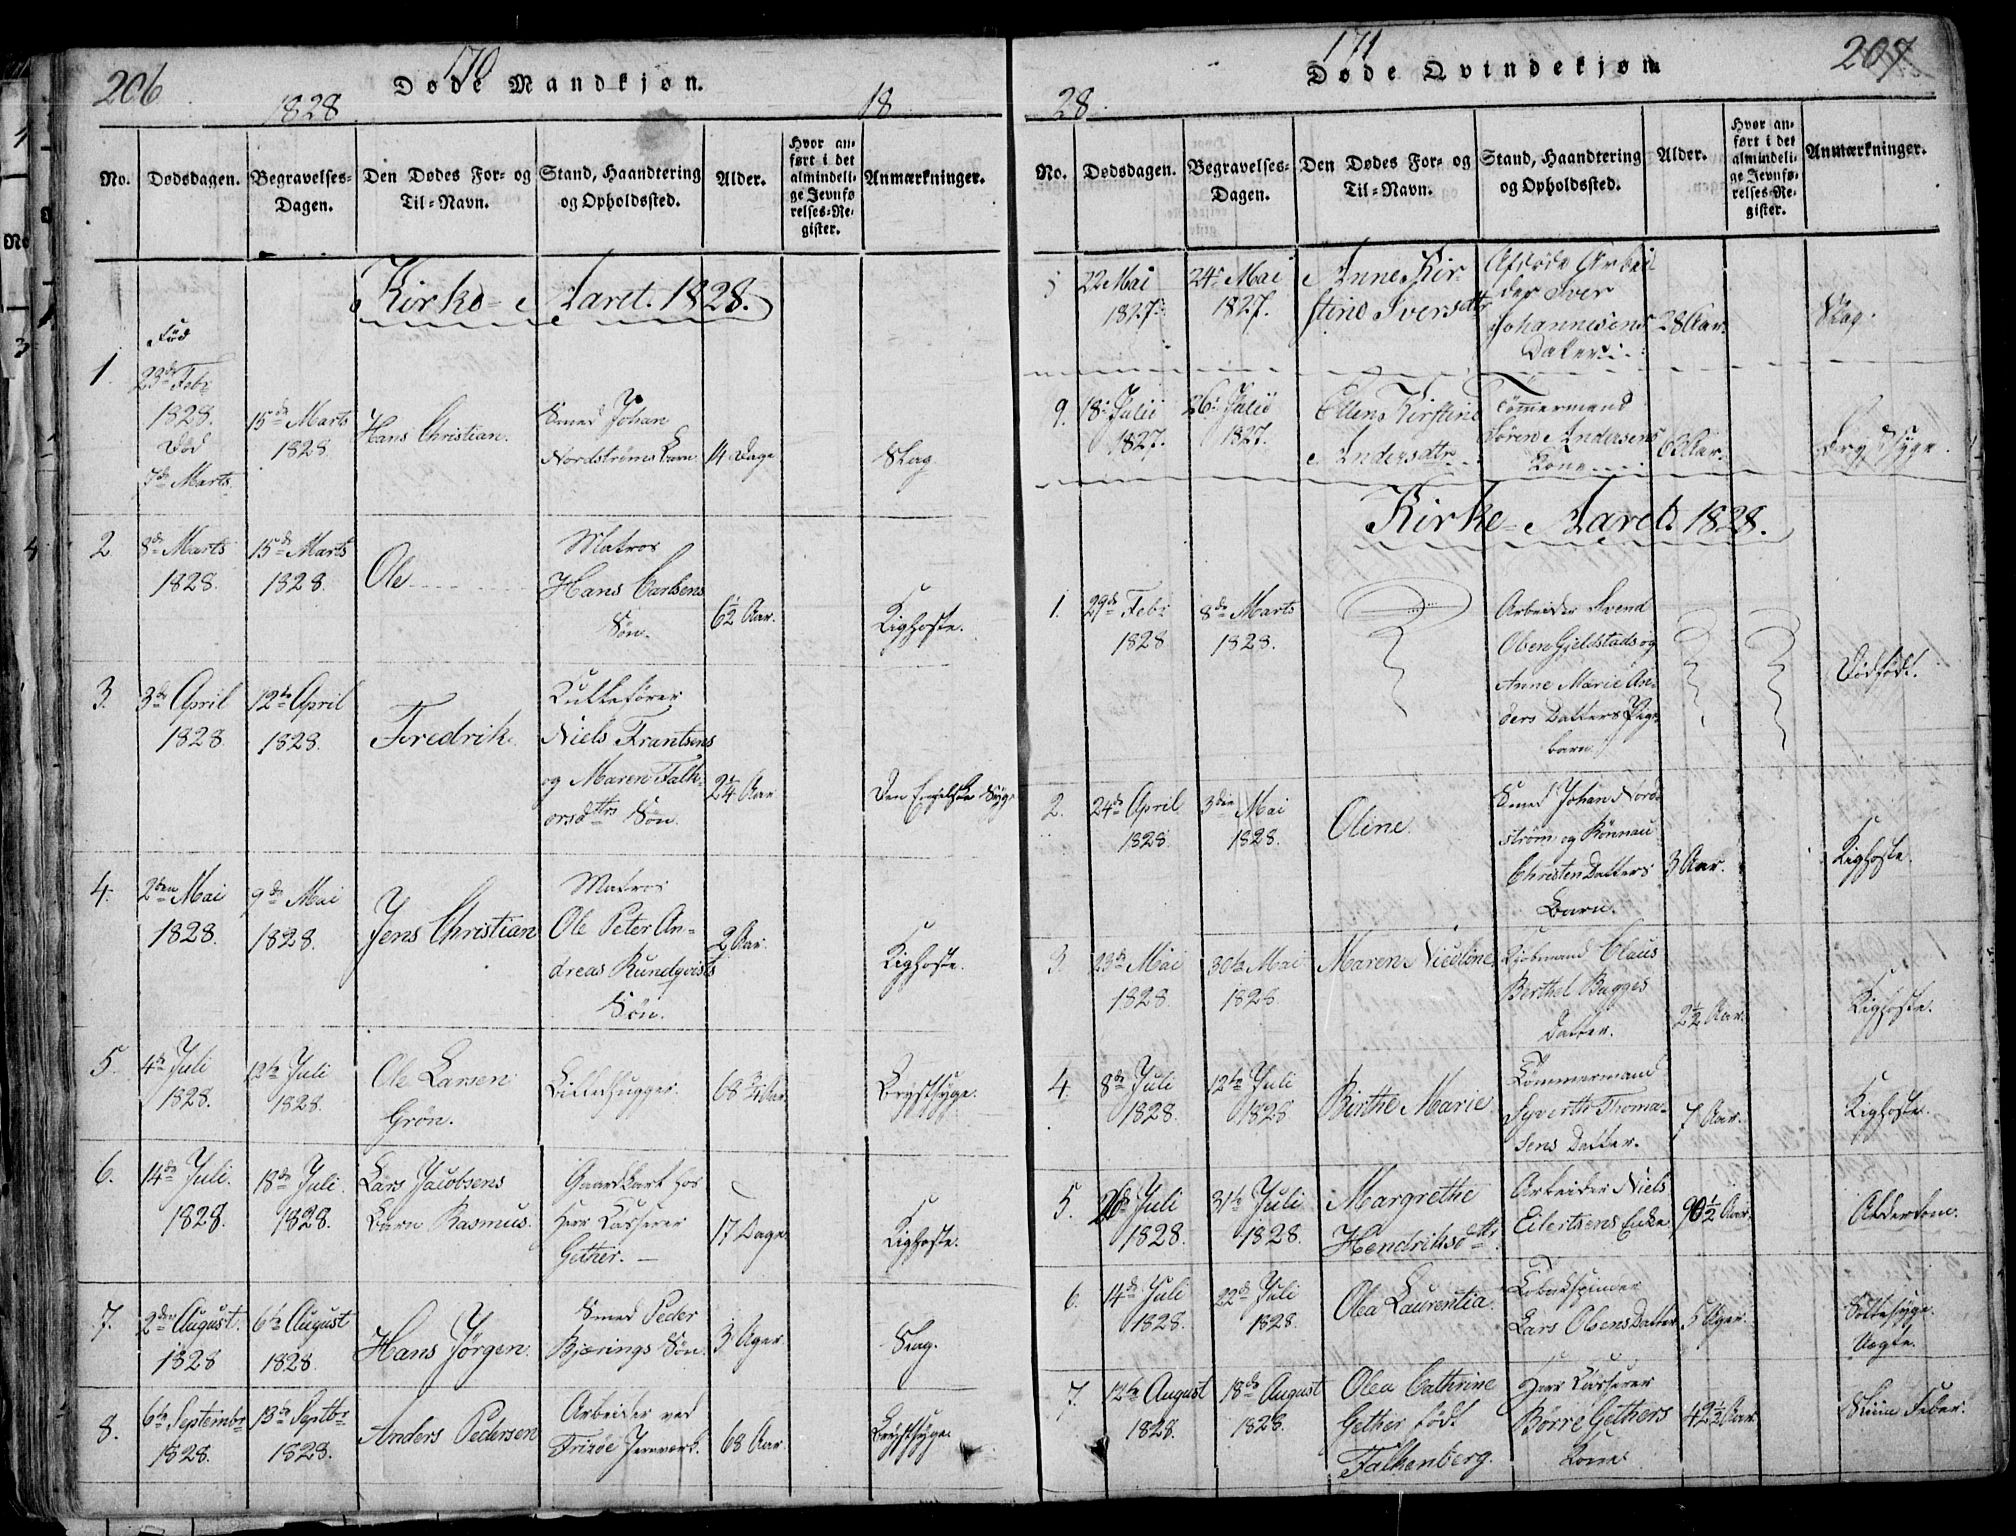 206
170
Døde Mandkjøn.
1828
18
No.
Dødsdagen.
Begravelses-
Dagen.
Den Dødes For- og
Til-Navn.
Stand, Haandtering
og Opholdssted.
Alder.
Hvor an-
ført i det
almindeli-
ge Jevnfø
relses-Re-
gister.
Anmærkninger.
Kirke-Aaret. 1828.
1.
Fød
23de Febr
1828.
Død
7de Marts
15de Marts
1828
Hans Christian.
Smed Johan
Nordstrøms Barn
14 Dage
Slag
2
8de Marts
1828.
15de Marts
1828.
Ole
Matros
Hans Carlsens
Søn.
6½ Aar.
Kighoste.
3.
3de April
1828
12te April
1828.
Fredrik.
Kullefører
Niels Frantsens
og Maren Falk-
orsdttrs Søn.
2¼ Aar
Den Engelske Syge
4.
2den Mai
1828.
9de Mai
1828.
Jens Christian
Matros
Ole Peter An-
dreas Rundqvists
Søn.
2 Aar.
Kighoste.
5.
4de Juli
1828.
12te Juli
1828.
Ole Larsen
Grøn.
Billedhugger.
68¾ Aar
Brystsyge.
6.
14de Juli.
1828.
18de Juli.
1828.
Lars Jacobsens
Barn Rasmus.
Gaardkarl hos
Herr Casserer
Gether.
17 Dage
Kighoste.
7.
2den August.
1828
6te August
1828.
Hans Jørgen.
Smed Peder
Bjærings Søn.
3 Uger
Slag.
8.
6te Septembr
1828.
13de Septbr
1828.
Anders Pedersen
Arbeider ved
Fritzøe Jernværk.
68 Aar
Brystsyge.
28.
171
Døde Qvindekjøn
207
No.
Dødsdagen.
Begravelses-
Dagen.
Den Dødes For- og
Til-Navn.
Stand, Haandtering
og Opholdssted.
Alder.
Hvor an-
ført i det
almindeli-
ge Jevnfø-
relses-Re-
gister.
Anmærkninger.
22 Mai
1827.
24de Mai
1827.
Anne Kir-
stine Iversdtr
Afdøde Arbei
der Iver
Johannesens
Datter.
28 Aar.
Slag.
9.
18. Julii
1827.
26. Julii
1827.
Ellens Kirstine
Andersdtr
Tømmermand
Søren Andersens
Kone
Brystsyge.
Kirke-Aaret. 1828.
1.
29de Febr
1828
8de Marts
1828.
Arbeider Svend
Olsen Gjeldstads og
Anne Marie An-
ders Datters Pige
barn.
Dødfødt.
2.
24de April
1828
3die Mai
1828.
Oline.
Smed Johan Nord-
strøm og Rønnau
Christen Datters
Barn.
3 Aar.
Kighoste.
3.
23de Mai
1828
30te Mai
1828
Maren Nicoline
Kjøbmand Claus
Berthel Bugges
Datter.
2½ Aar.
Kighoste.
4.
8de Juli
1828.
12te Juli
1828
Birthe Marie.
Tømmermand
Syverth Thoma-
sens Datter.
7 Aar.
Kighoste.
5.
26de Juli
1828.
31te Juli
1828.
Margrethe
Hendriksdttr.
Arbeider Niels
Eilertsens Enke
90½ Aar.
Alderdom.
6.
14de Juli
1828.
22de Juli
1828.
Olea Laurentia.
Tobakspinder
Lars Olsens Datter
5 Uger.
Sottesyge.
Aegte.
7.
12te August
1828.
18de August
1828.
Olea Cathrine
Gether født
Falkenberg.
Herr Casserer
Børre Gethers
Kone
42½ Aar.
Feber.